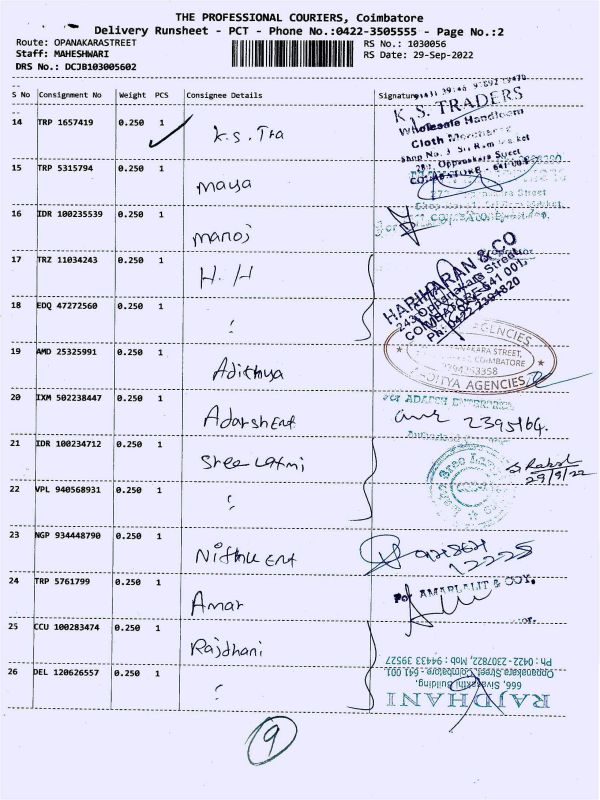 THE PROFESSIONAL COURIERS, Coimbatore
Delivery Runsheet - PCT - Phone No.:0422-3505555 - Page No.:2
Route: OPANAKARASTREET RS No.: 1030056
Staff: MAHESHWARI RS Date: 29-Sep-2022
DRS No.: DCJB103005602
S No Consignment No Weight PCS Consignee Details Signature
14 TRP 1657419 0.250 1 K.S. Tra
K. S. TRADERS
Wholesale Handloom
Cloth Merchants
Shop No. 3 Sri Ram Market
Oppanakara Street
COIMBATORE - 641 001
15 TRP 5315794 0.250 1 maya
16 IDR 100235539 0.250 1 manoj
17 TRZ 11034243 0.250 1 H. H
HARIHARAN & CO
243, Oppanakara Street
COIMBATORE-641 001.
Ph: 0422-2394820
18 EDQ 47272560 0.250 1 ;
19 AMD 25325991 0.250 1 Adithya
AGENCIES
OPPANAKARA STREET,
COIMBATORE
ADITYA AGENCIES
20 IXM 502238447 0.250 1 Adarsh Ent
For ADARSH ENTERPRISES
2395164.
21 IDR 100234712 0.250 1 Sree Laxmi
29/9/22
22 VPL 940568931 0.250 1 ;
23 NGP 934448790 0.250 1 Nithu Ent
12225
24 TRP 5761799 0.250 1 Amar
For AMARLALIT & COY.
25 CCU 100283474 0.250 1 Rajdhani
26 DEL 120626557 0.250 1 ;
RAJDHANI
666, Sivasakthi Building,
Oppanakara Street, Coimbatore - 641 001
Ph : 0422 - 2307822, Mob : 94433 39527
9